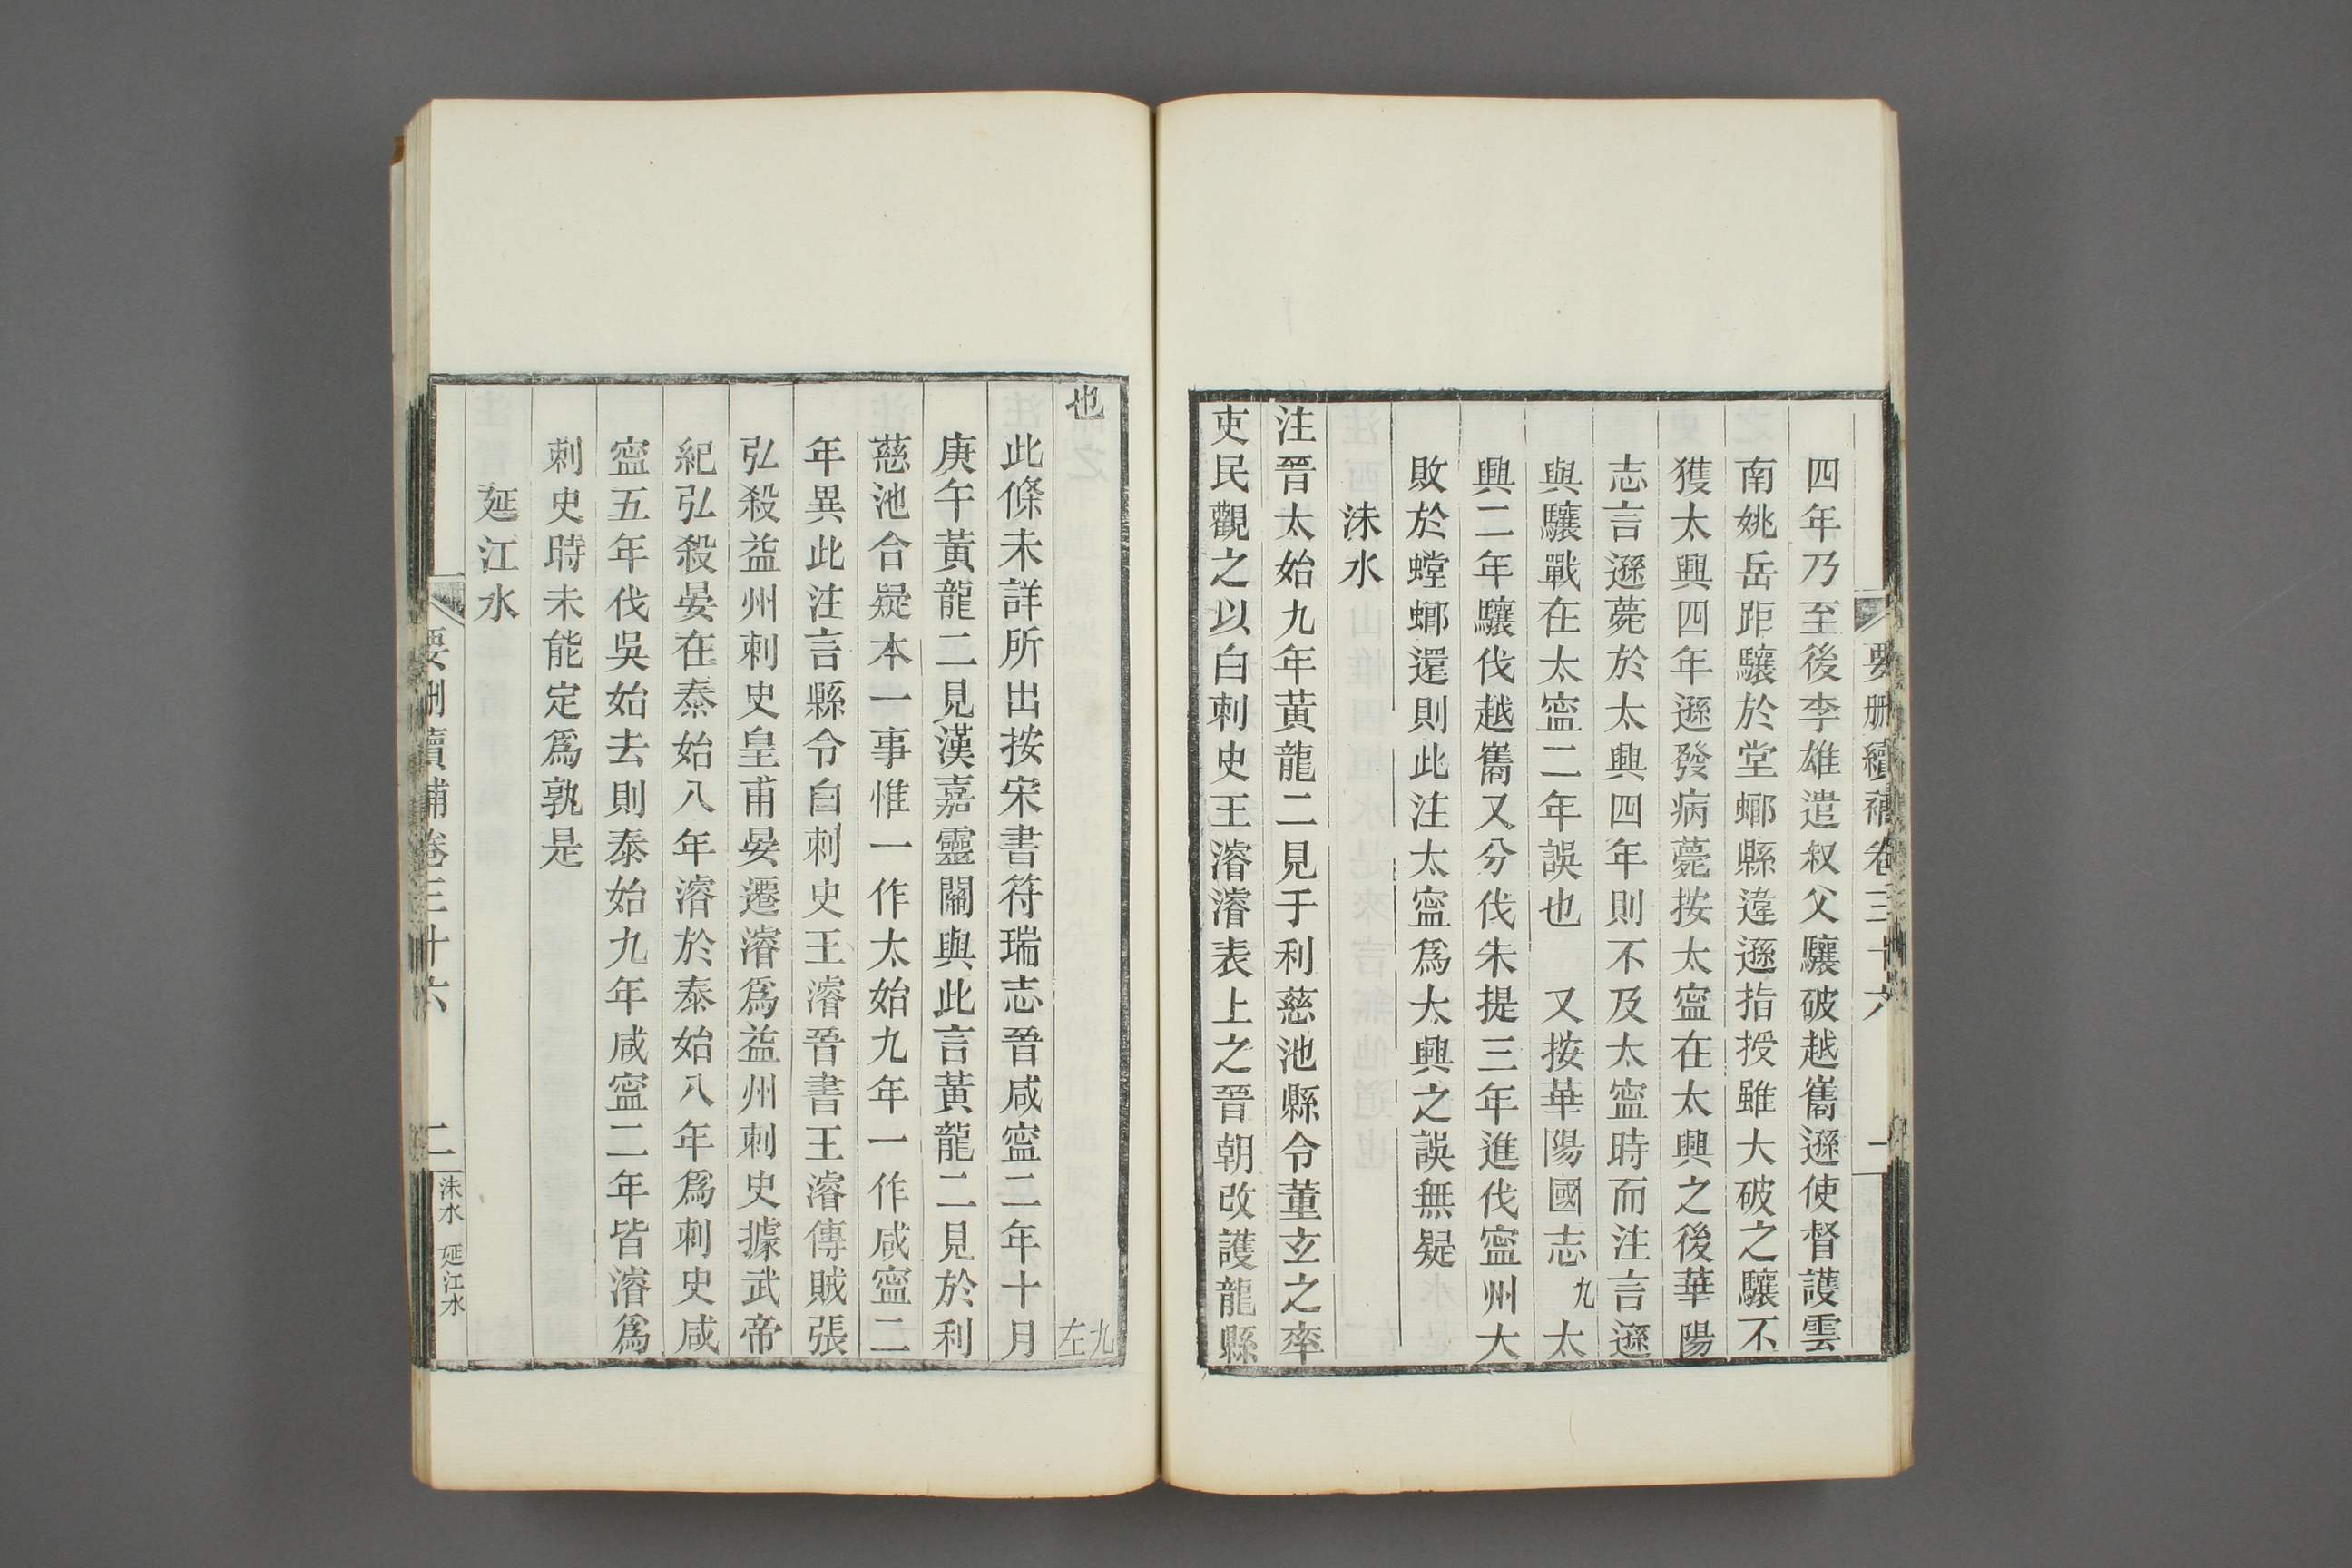 要刪續補卷三十六
四年乃至後李雄遣叔父驤破越巂遜使督護雲
南姚岳距驤於堂螂縣違遜指授雖大破之驤不
獲太興四年遜發病薨按太寍在太興之後華陽
志言遜薨於太興四年則不及太寍時而注言遜
與驤戰在太寍二年誤也　又按華陽國志九太
興二年驤伐越巂又分伐朱提三年進伐寍州大
敗於螳螂還則此注太寍爲大興之誤無疑
沫水
注晉太始九年黃龍二見于利慈池縣令董玄之率
吏民觀之以白刺史王濬濬表上之晉朝改護龍縣
也　九左
此條未詳所出按宋書符瑞志晉咸寍二年十月
庚午黃龍二見漢嘉靈關與此言黃龍二見於利
慈池合疑本一事惟一作太始九年一作咸寍二
年異此注言縣令自刺史王濬晉書王濬傳賊張
弘殺益州刺史皇甫晏遷濬爲益州刺史據武帝
紀弘殺晏在泰始八年濬於泰始八年爲刺史咸
寍五年伐吳始去則泰始九年咸寍二年皆濬爲
刺史時未能定爲孰是
延江水
要刪續補卷三十六　二　沫水　延江水